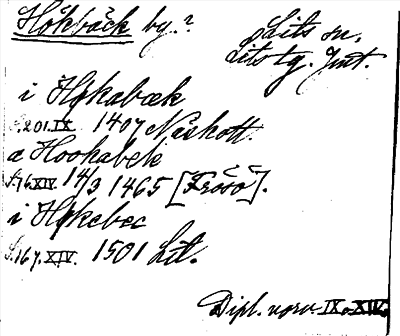 Hökbäck by.?
Lits sn.
Lits tg. Jmt.
i Høkabæk
S.201.IX. 1407 Näskott.
a Hookabek
S.76.XIV. 14/3 1465 [Frösö].
i Høkebec
S.167.XIV. 1501 Lit.
Dipl. norv. IX. XIV.